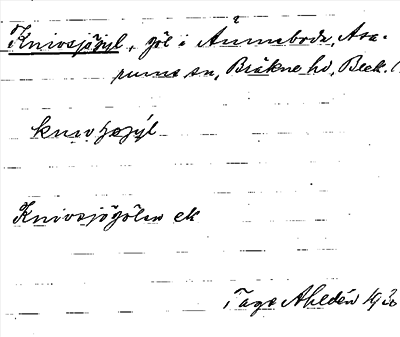 Knivsjögyl, göl i Ånneboda, Asa-
rums sn, Bräkne hd, Blek.
Knivsjögölen ek
Tage Ahldén 19